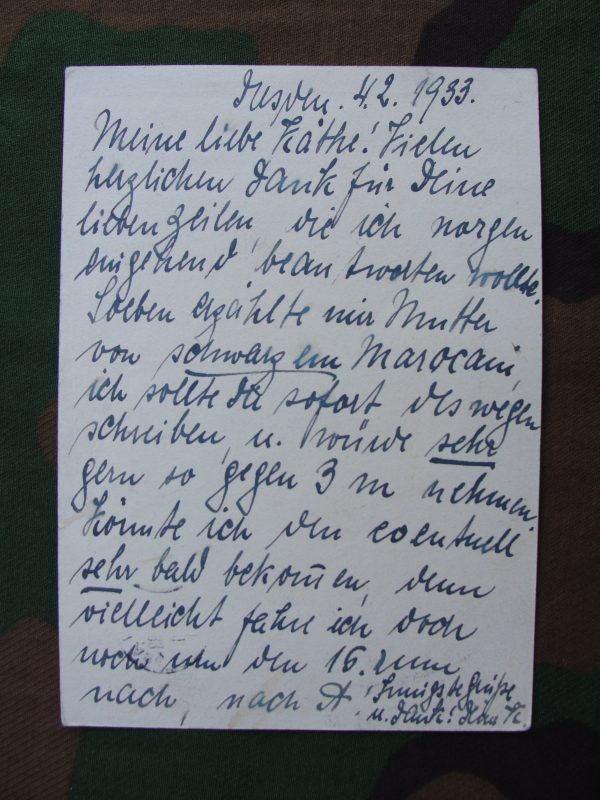 Dresden, 4.2.1933.
Meine liebe Käthe! Vielen
herzlichen Dank für Deine
lieben Zeilen, die ich morgen
eingehend beantworten wollte.
Soeben erzählte mir Mutter
von schwarzem Marocain,
ich sollte Dir sofort deswegen
schreiben, u. würde sehr
gern so gegen 3 m nehmen.
Könnte ich den eventuell
sehr bald bekom̅en, denn
vielleicht fahre ich doch
noch um den 16. rum
nach, nach A. Innigste Grüße
u. Dank! Deine K.